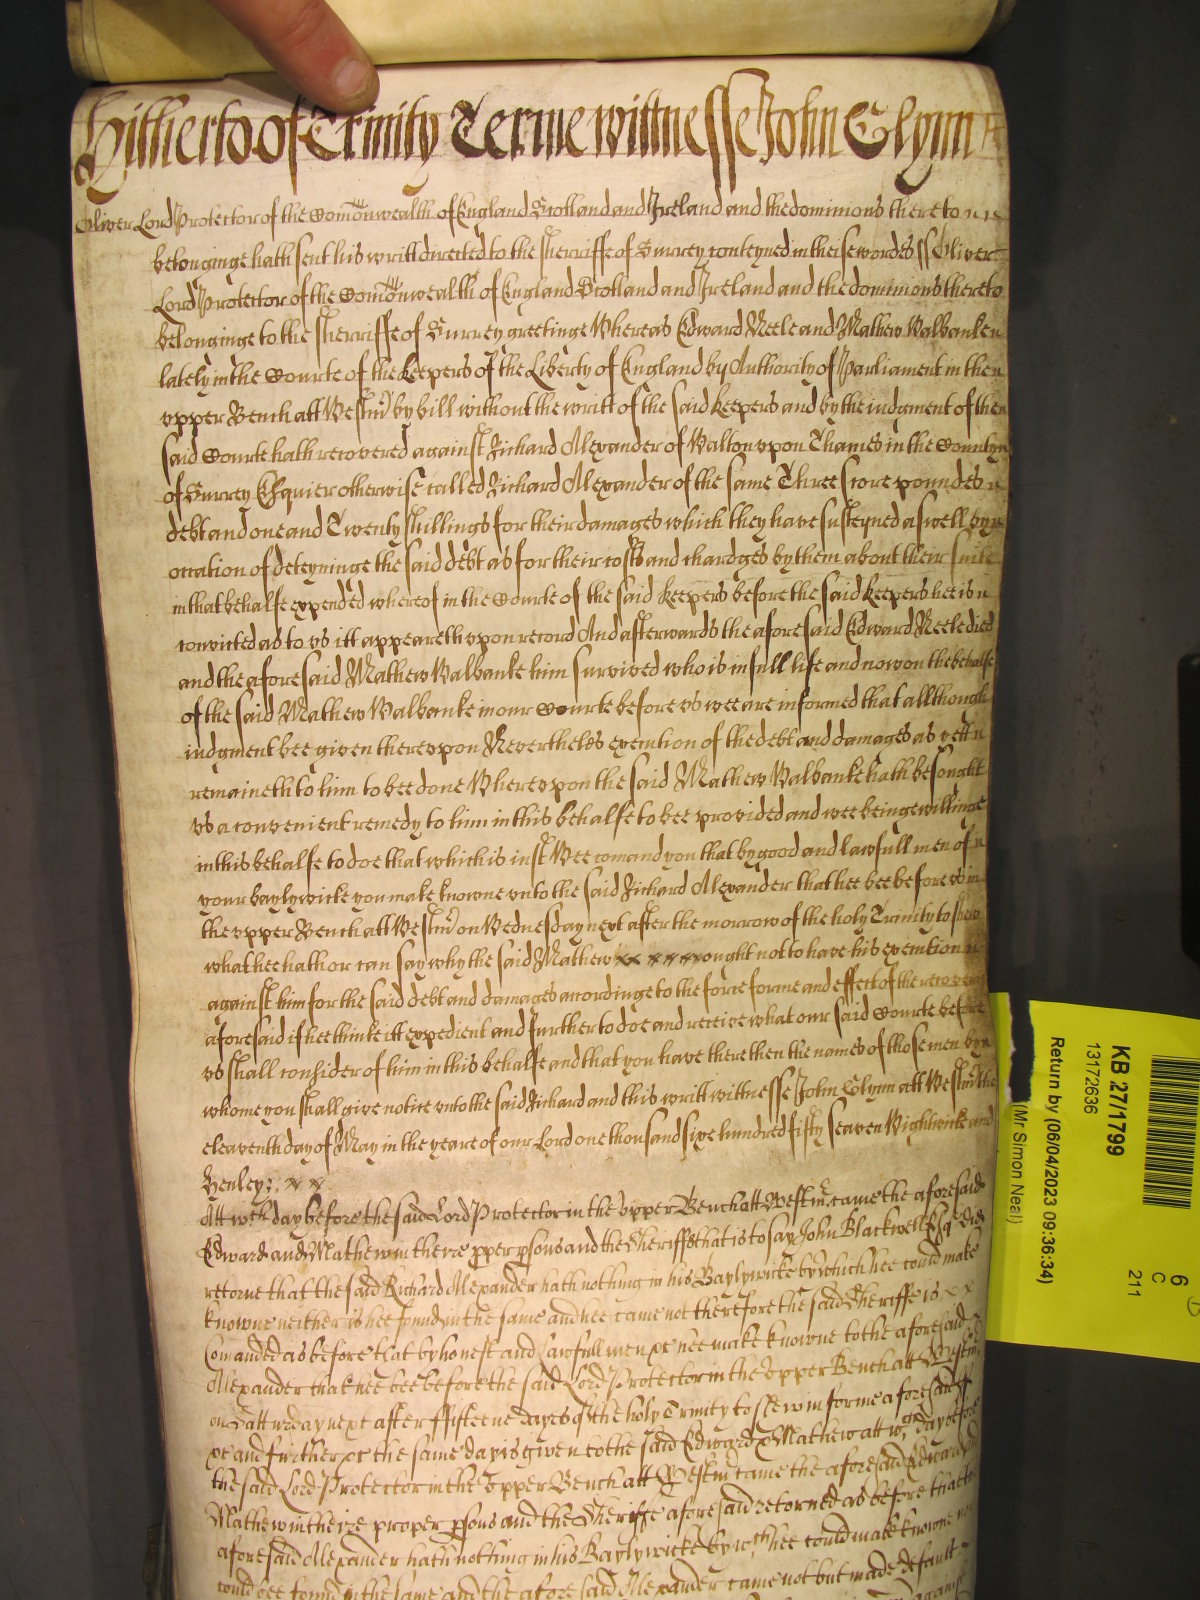 Hitherto of Trinity Terme wittnesse John Glynn
Oliver Lord Protector of the Comonwealth of England Scotland and Ireland and the dominions thereto
belonginge hath sent his writt directed to the Sherriffe of Surrey conteyned in theise wordes ss Oliver
Lord Protector of the Comonwealth of England Scotland and Ireland and the dominions thereto
belonginge to the Sherriffe of Surrey greetinge Whereas Edward Neele and Mathew Walbanke
lately in the Courte of the keepers of the Liberty of England by Authority of Parliament in the
upper Bench att Westmr by bill without the writt of the said keepers and by the iudgment of the
said Courte hath recovered against Richard Alexander of Walton upon Thames in the County
of Surrey Esquier otherwise called Richard Alexander of the same Three score poundes
debt and one and Twenty shillings for their damages which they have susteyned aswell by
occation of deteyninge the said debt as for their costs and chardges by them about their suite
in that behalfe expended whereof in the Courte of the said keepers before the said keepers hee is
convicted as to us itt appeareth upon record And afterwards the aforesaid Edward Neele died
and the aforesaid Mathew Walbanke him survived who is in full life and now on the behalfe
of the said Mathew Walbanke in our Courte before us wee are informed that allthough
iudgment bee given thereupon Neverthelés execution of the debt and damages as yett
remaineth to him to bee done Whereupon the said Mathew Walbanke hath besought
us a convenient remedy to him in this behalfe to bee provided and wee beinge willinge
in this behalfe to doe that which is iust Wee comand you that by good and lawfull men of
your baylywicke you make knowne unto the said Richard Alexander that hee bee before us in
the upper Bench att Westmr on Wednesday next after the morrow of the holy Trinity to shew
what hee hath or can say why the said Mathew ought not to have his execution
against him for the said debt and damages accordinge to the force forme and effect of the recovery
aforesaid if hee thinke itt expedient and further to doe and receive what our said Courte before
us shall consider of him in this behalfe and that you have there then the names of those men by
whome you shall give notice unto the said Richard and this writt wittnesse John Glynn att Westmr the
eleaventh day of May in the yeare of our Lord one thousand sixe hundred fifty seaven Wightwicke and
Henley:
Att wch day before the said Lord Protector in the Upper Bench att Westmr came the aforesaid
Edward and Mathew in theire pper psons and the Sheriffe that is to say John Blackwell Esqr did
retorne that the said Richard Alexander hath nothing in his Baylywicke by which hee could make
knowne neither is hee found in the same and hee came not therefore the said Sheriffe is
Comanded as before that by honest and Lawfull men &c hee make knowne to the aforesaid
Alexander that hee bee before the said Lord Protector in the Upper Bench att Westmr
on Satturday next after ffifteene dayes of the holy Trinity to shew in forme aforesaid if
&c and further &c the same day is given to the said Edward & Mathew att wch day before
the said Lord Protector in the Upper Bench att Westmr came the aforesaid Edward and
Mathew in theire proper psons and the Sheriffe aforesaid retorned as before that the
aforesaid Alexander hath nothing in his Baylywicke by wch hee could make knowne
could bee found in the same and the aforesaid Alexander came not but made default
KB 27/1799
13172636
Return by (06/04/2023 09:36:34)
(Mr Simon Neal)
6
C
211